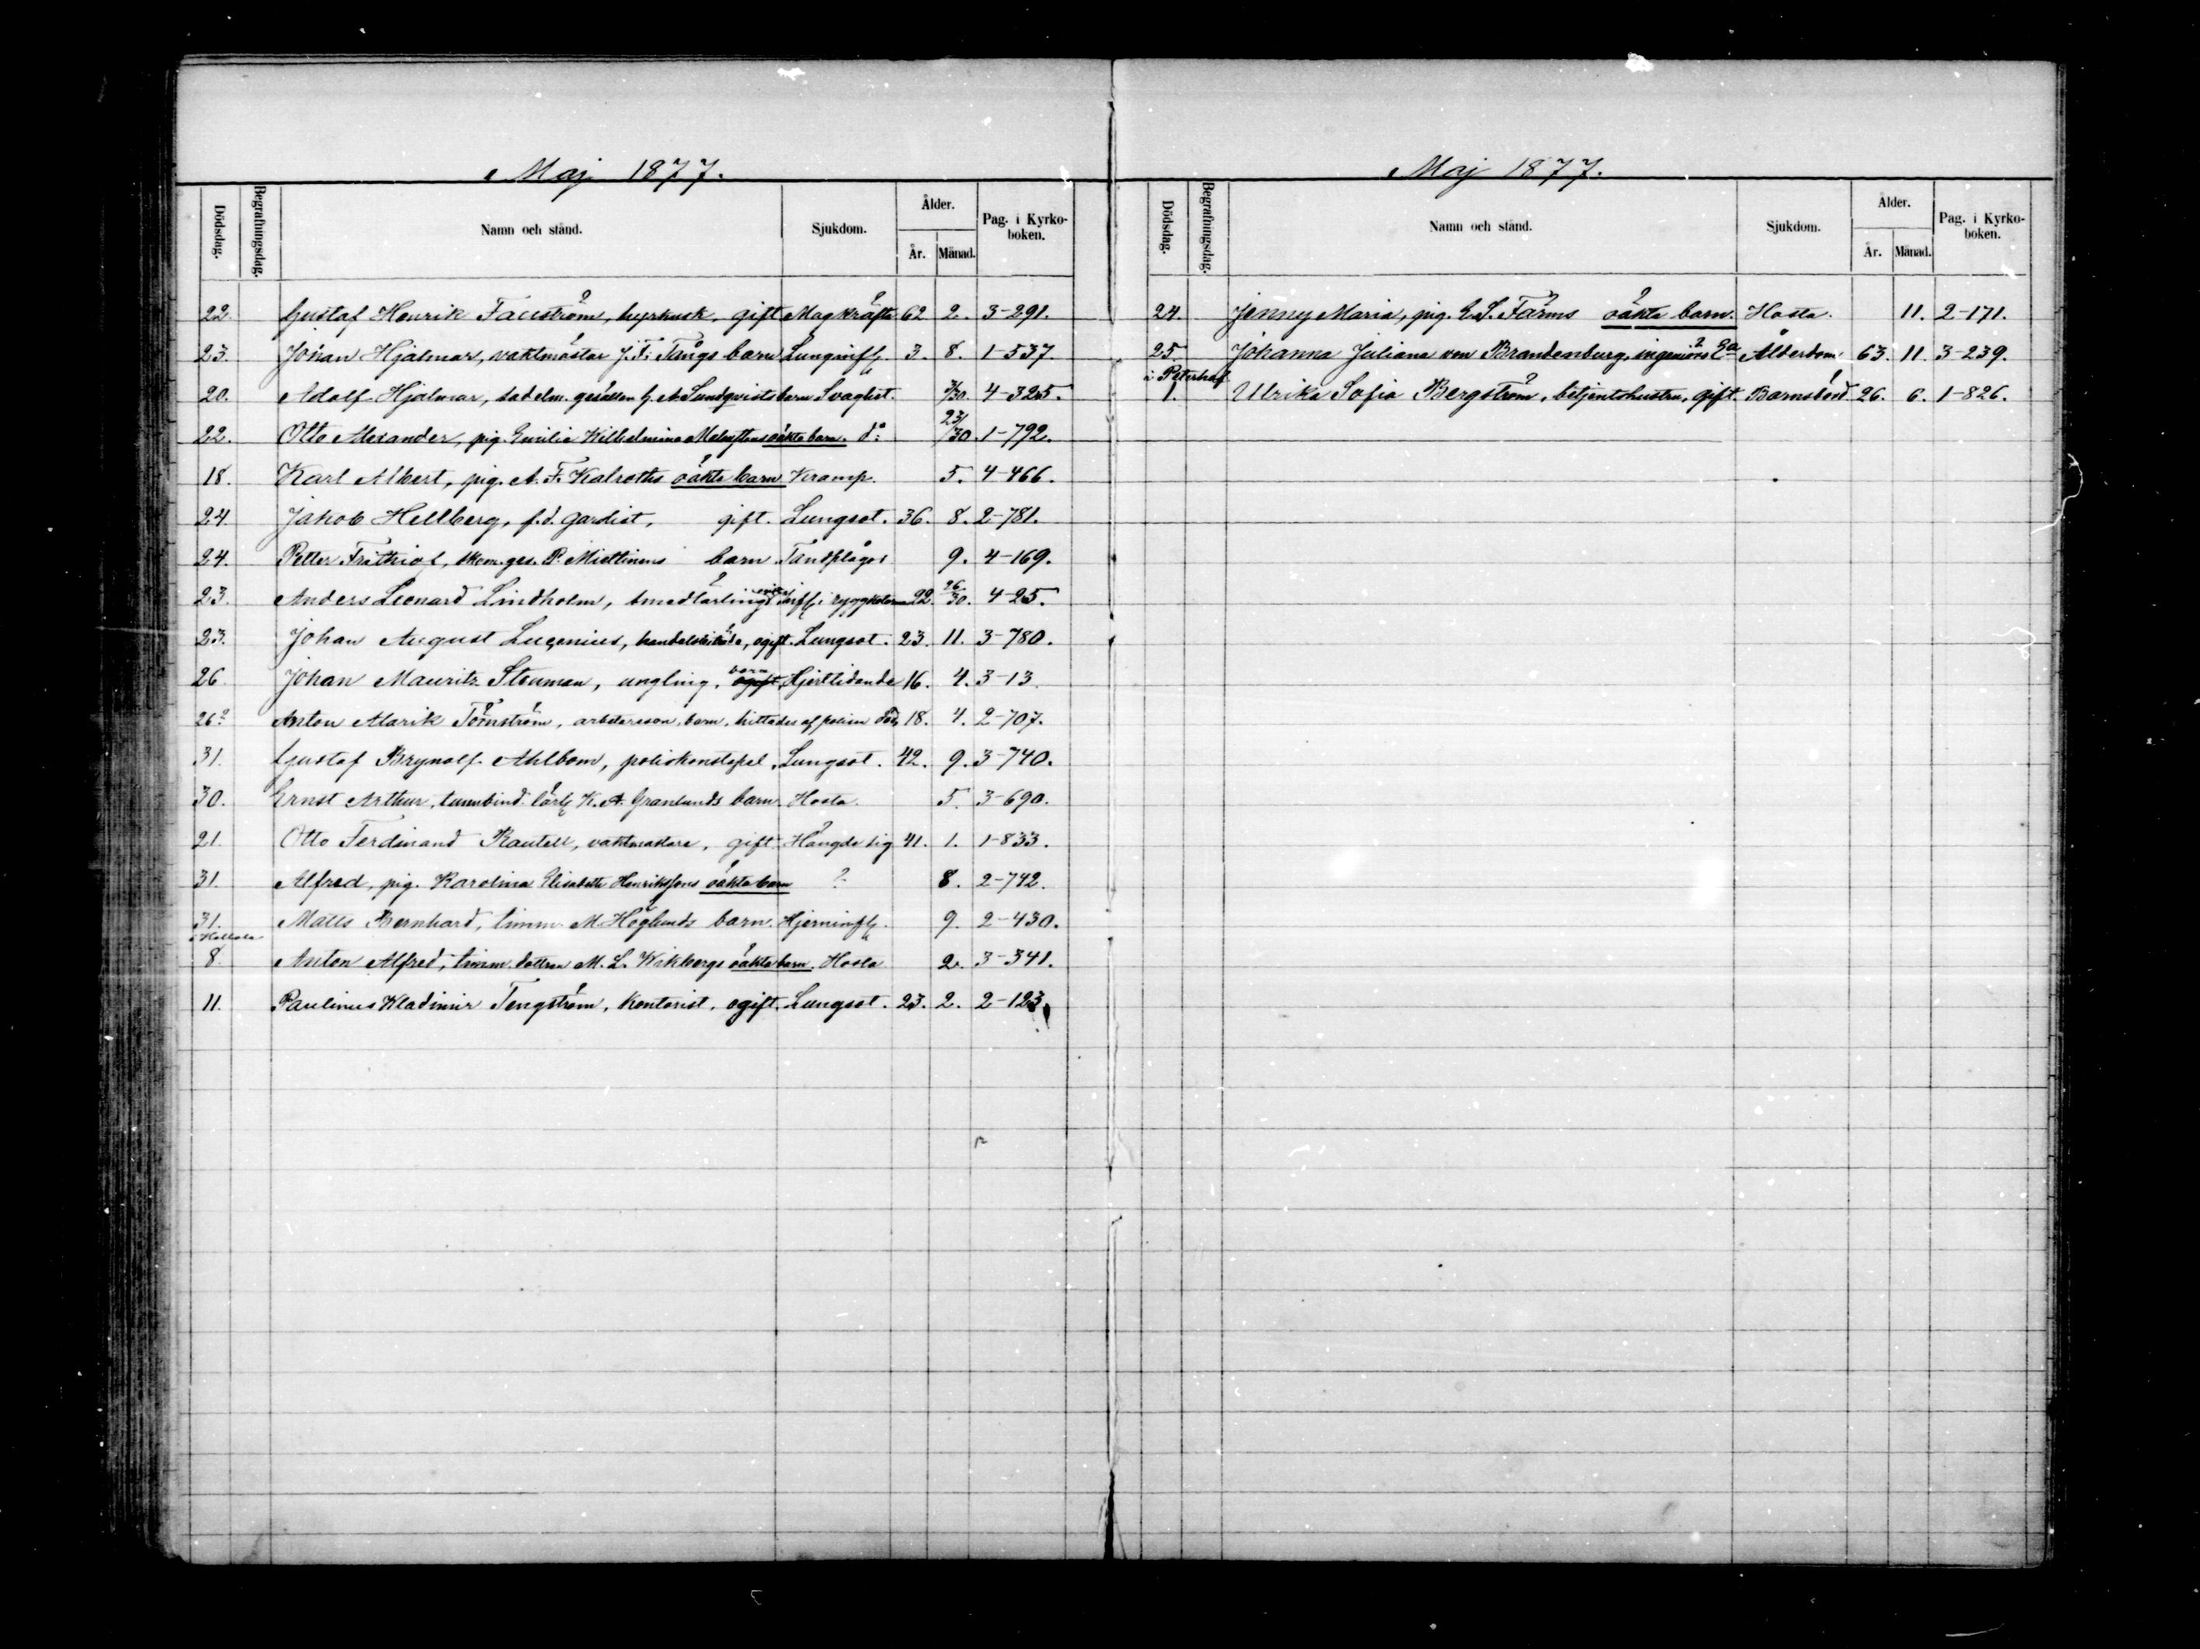 Maj 1877.
Dödsdag. Begrafningsdag. Namn och stånd. Sjukdom. Ålder. År. Månad. Pag. i Kyrko-boken.
22. Gustaf Henrik Fallström, hyrkusk, gift Magkräfta 62 2. 3-291.
23. Johan Hjalmar, vaktmästar J. F. Tångs barn Lunginfl. 3. 8. 1-537.
20. Adolf Hjalmar, sadelm. gesällen G. A. Sundqvists barn Svaghet. 3/30. 4-325.
22. Otto Alexander, pig. Emilia Vilhelmina oäkta barn. d:o 23/30 1-792.
18. Karl Albert, pig. A. F. Kalroths oäkta barn Kramp. 5. 4-466.
24. Jakob Hellberg, f.d. gardist, gift. Lungsot. 36. 8. 2-781.
24. Petter Frithiof, skom.ges. P. Miettinens barn Tandplågor 9. 4-169.
23. Anders Leonard Lindholm, smedlärling infl. i ryggkotorna 22. 26/30. 4-25.
23. Johan August Lucenius, handelsbiträde, ogift. Lungsot. 23. 11. 3-780.
26. Johan Mauritz Stenman, yngling, barn ogift, Hjertlidande 16. 4. 3-13.
26? Anton Alarik Törnström, arbetareson, barn, hittades af polisen död 18. 4. 2-707.
31. Gustaf Brynolf Ahlbom, poliskonstapel, Lungsot. 42. 9. 3-740.
30. Ernst Arthur, tunnbind. lärl. K. A. Granlunds barn Hosta. 5. 3-690.
21. Otto Ferdinand Rautell, vaktmästare, gift. Hängde sig 41. 1. 1-833.
31. Alfred, pig. Karolina Elisabeth Henrikssons oäkta barn ? 8. 2-742.
31. Matts Bernhard, timm. M. Höglunds barn. Hjerninfl. 9. 2-430.
i Hollola
8. Anton Alfred, timm. dottren M. L. Wikbergs oäkta barn. Hosta 2. 3-341.
11. Paulinus Wladimir Tengström, kontorist, ogift. Lungsot. 23. 2. 2-123.
Maj 1877.
Dödsdag. Begrafningsdag. Namn och stånd. Sjukdom. Ålder. År. Månad. Pag. i Kyrko-boken.
24. Jenny Maria, pig. E. S. Färms oäkta barn. Hosta. 11. 2-171.
25. Johanna Juliana von Brandenburg, ingeniörs Ea Ålderdom 63. 11. 3-239.
i Peterhof
1. Ulrika Sofia Bergström, betjentshustru, gift Barnsbörd 26. 6. 1-826.